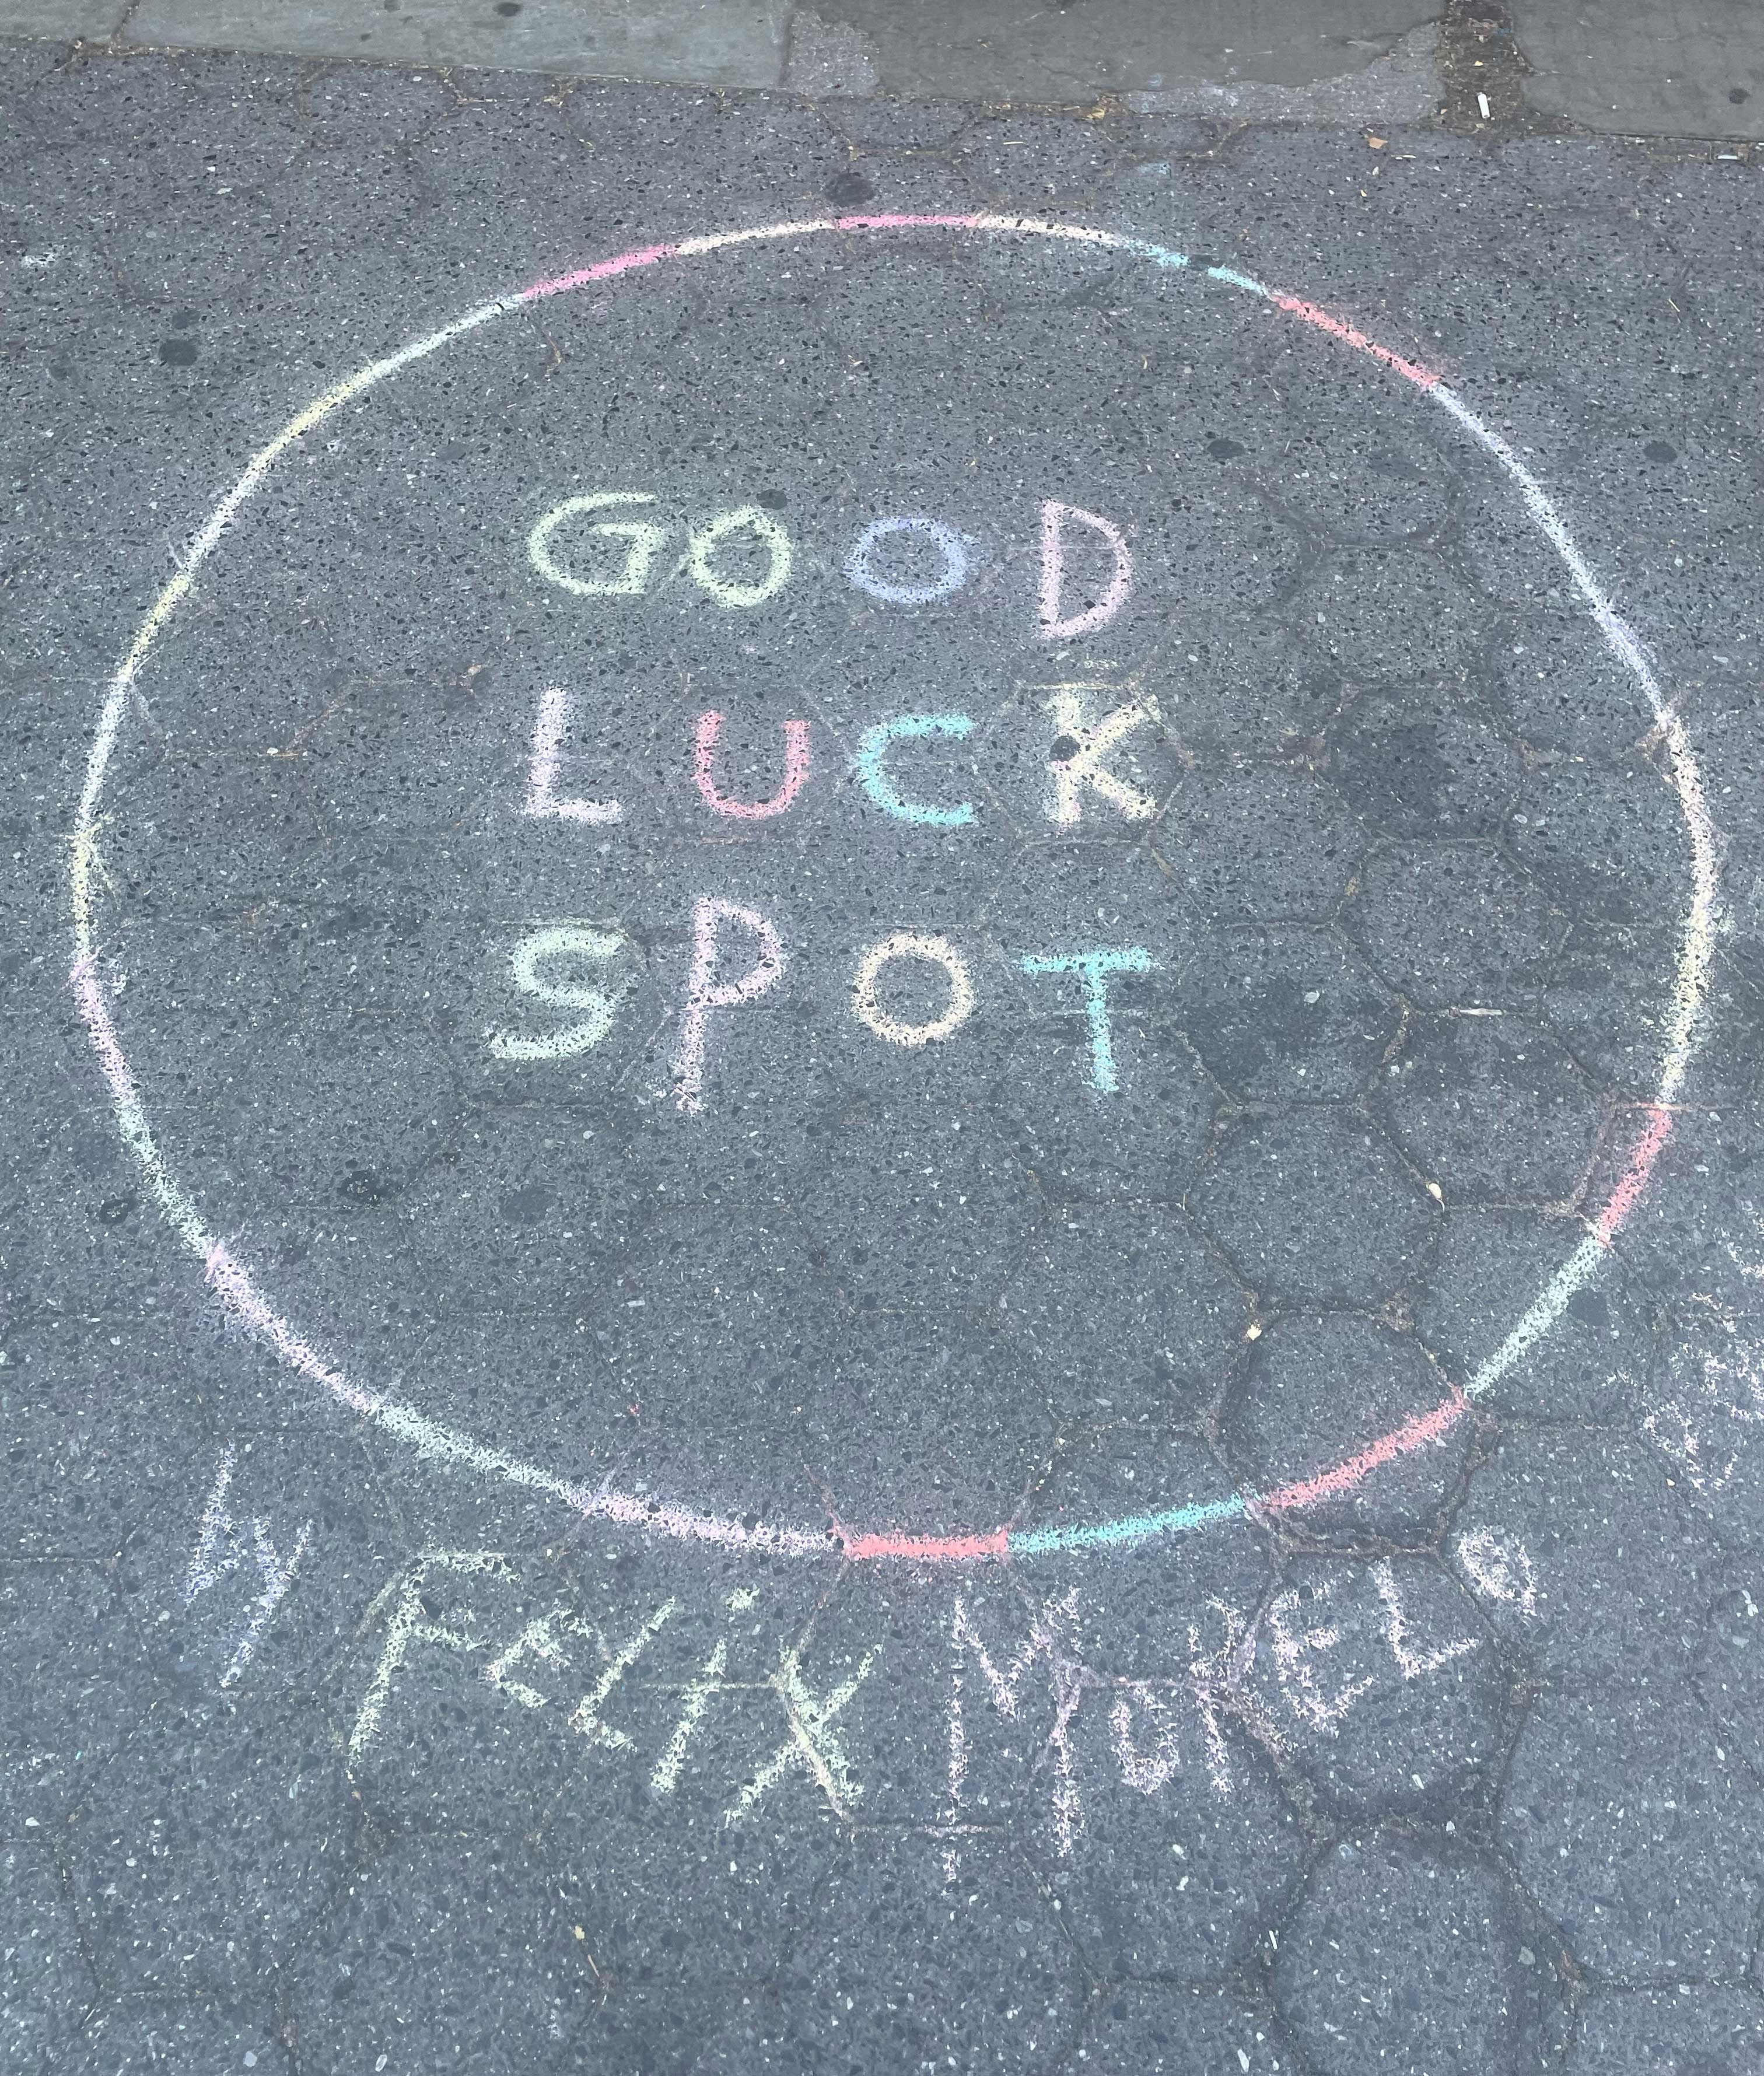 GOOD
LUCK
SPOT
by FeLiX MoRELO